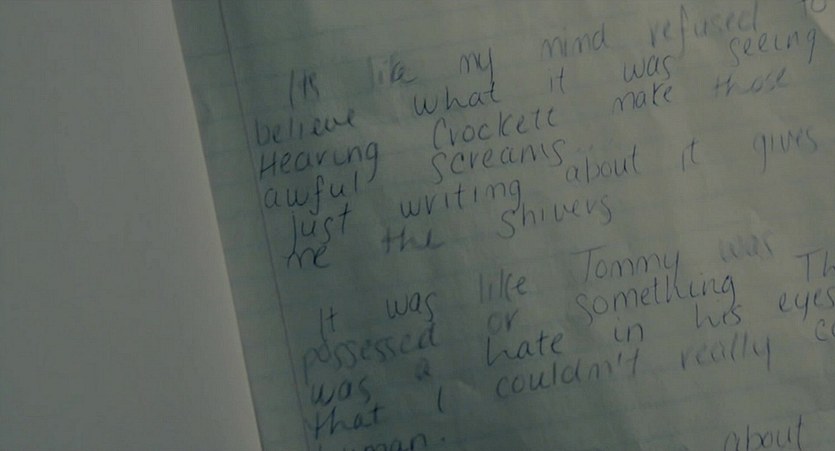 Its like my mind refused to
believe what it was seeing
Hearing Crockett make those
awful screams
just writing about it gives
me the shivers
It was like Tommy was
possessed or something Th
was a hate in his eyes
that I couldn't really c
about